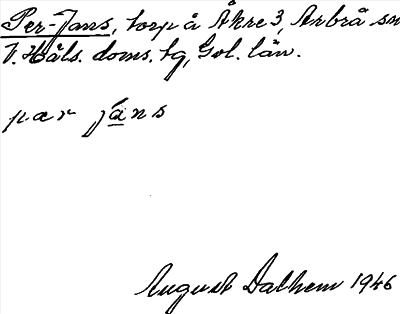 Per-Jans, torp å Åkre 3, Arbrå sn
V. Häls. doms. tg, Gvl. län.
pær jáns
August Dalhem 1946